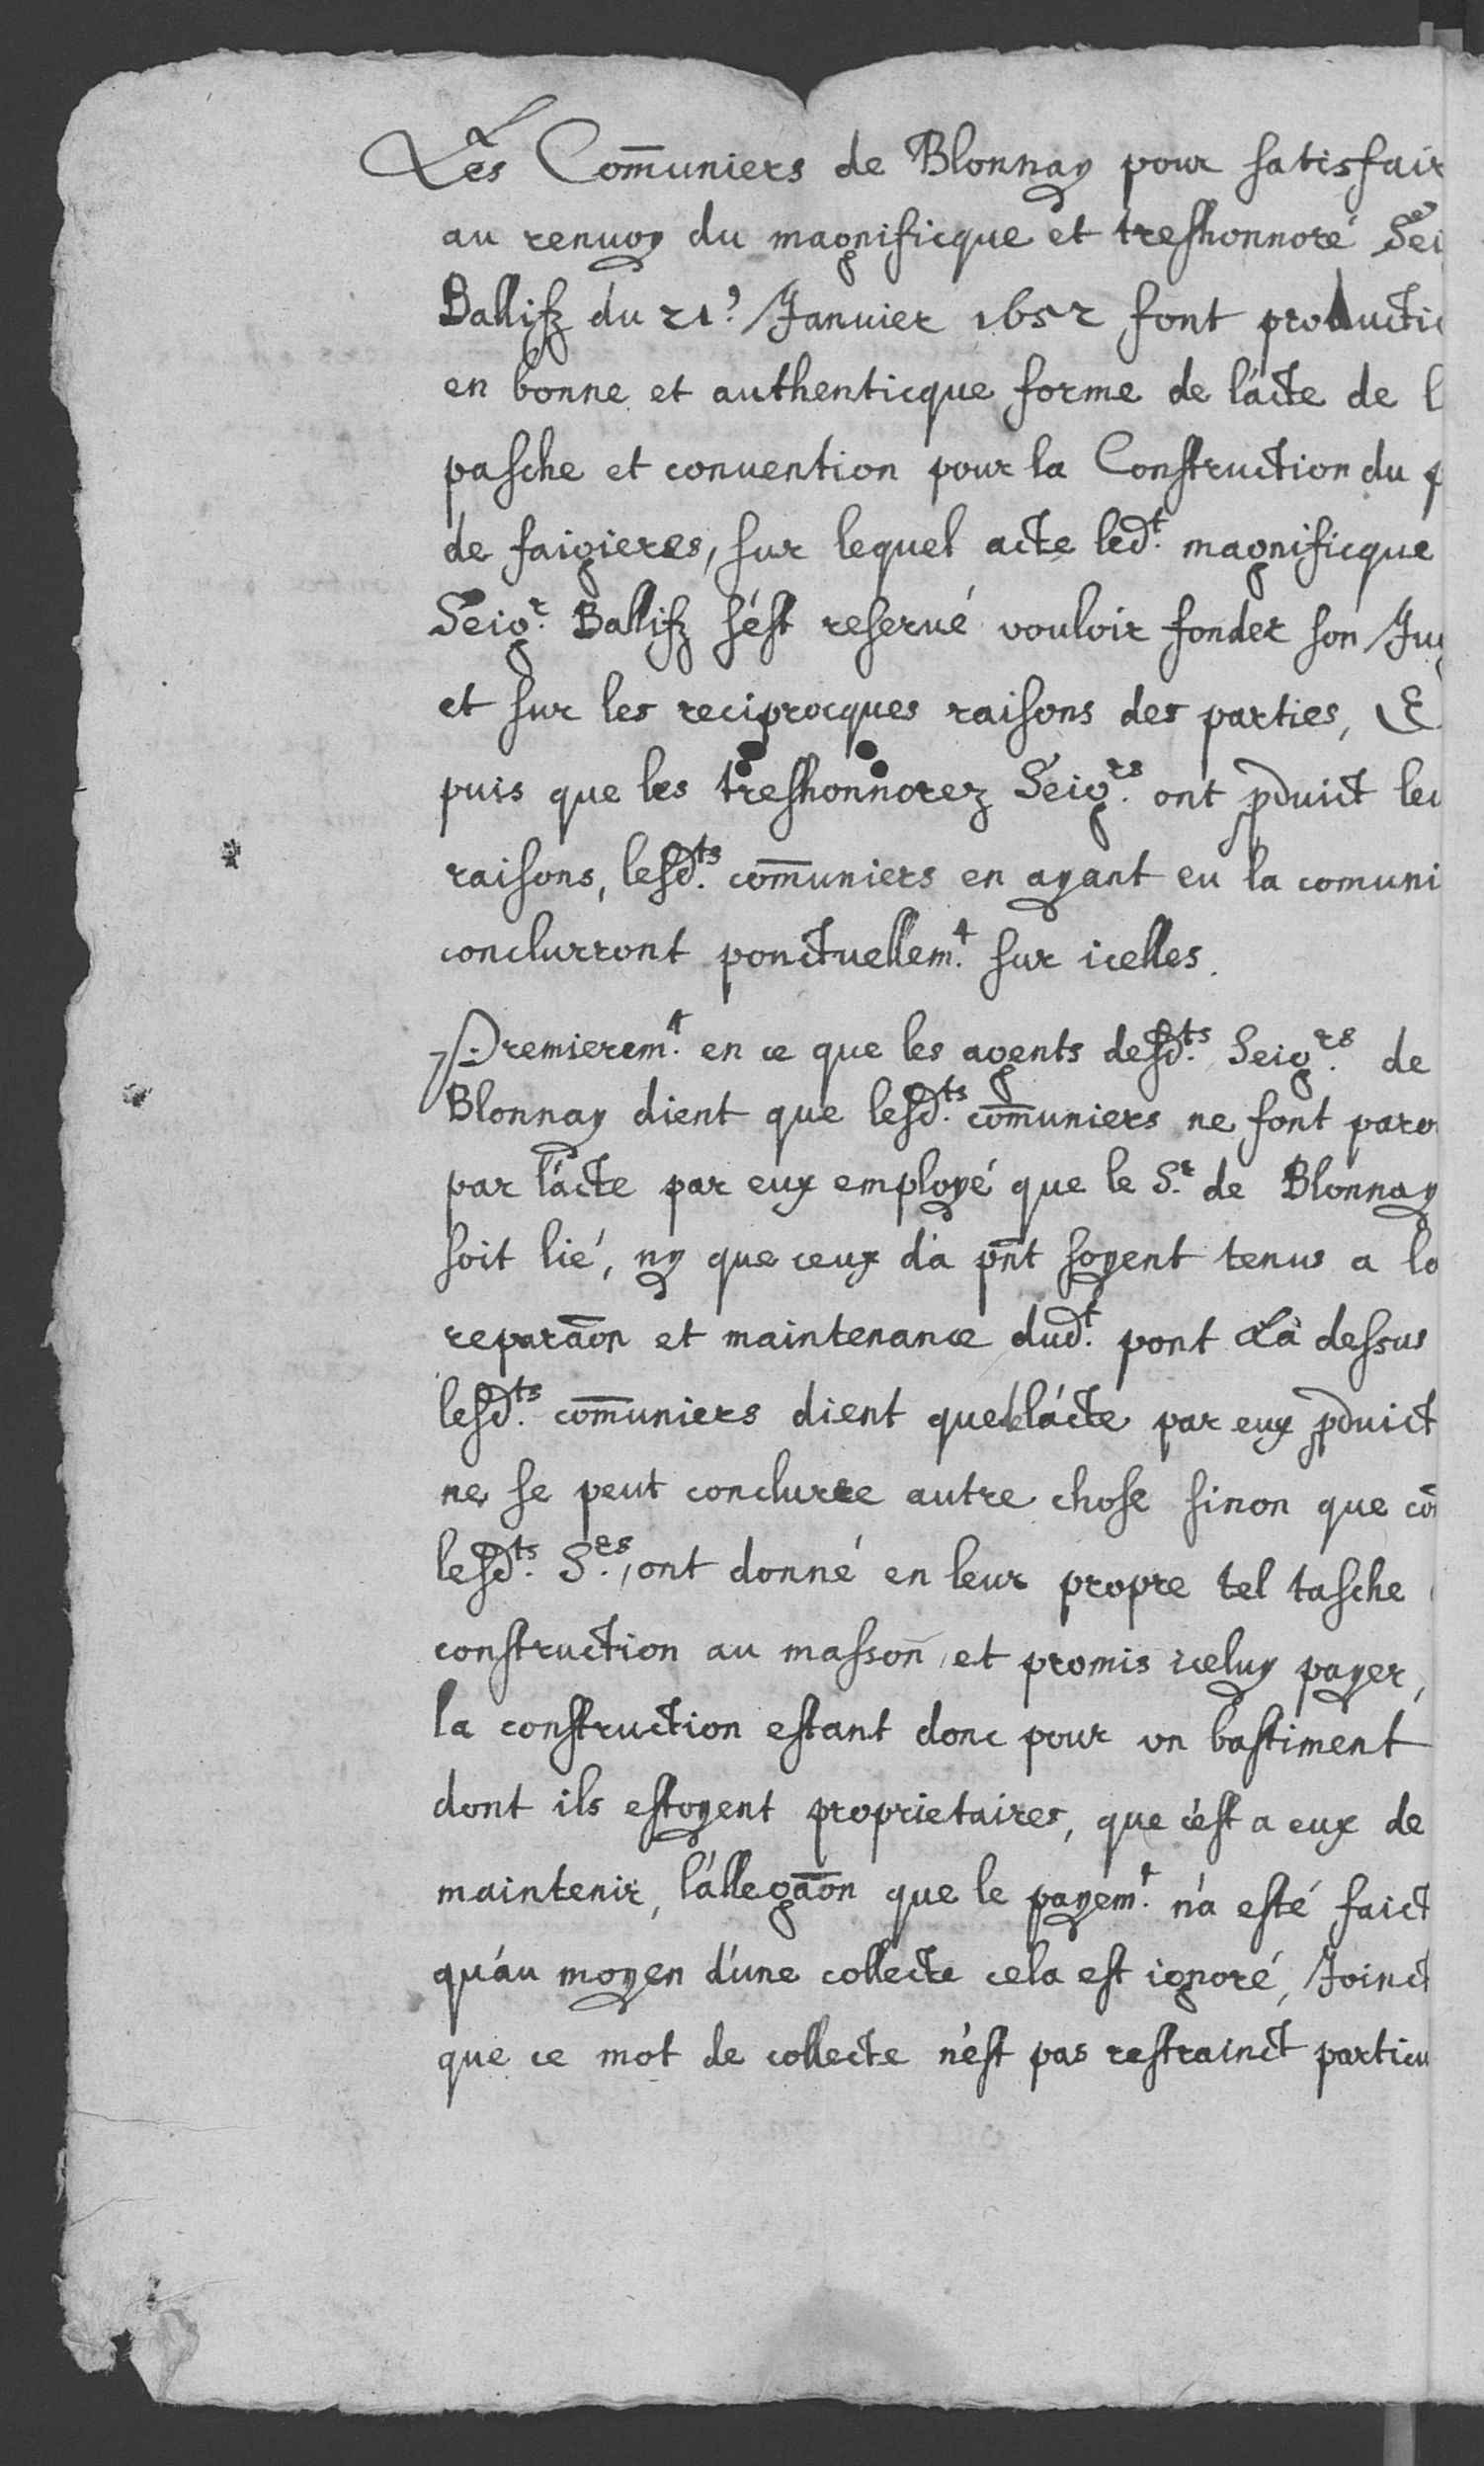 Les Com̄uniers de Blonnay pour satisfair
au renuoy du magnificque et treshonnoré Sei
Ballifz du 21e Januier 1652 font producti
en bonne et authenticque forme de l'acte de l
pasche et conuention pour la Construction du p
de faigieres, sur lequel acte led.t magnificque
Seig.r Ballifz s'est reserué vouloir fonder son Jug
et sur les reciprocques raisons des parties, E
puis que les treshonnorez Seig.rs ont pduict leu
raisons, lesd.ts com̄uniers en ayant eu la comuni
conclurront ponctuellem.t sur icelles.
Premierem.t en ce que les agents desd.ts Seig.rs de
Blonnay dient que lesd.ts com̄uniers ne font paro
par l'acte par eux employé que le S.r de Blonnay
soit lié, ny que ceux d'a pn̄t soyent tenus a la
reparāon et maintenance dud.t pont Là dessus
lesd.ts com̄uniers dient que de l'acte par eux pduict
ne se peut conclurre autre chose sinon que cō
lesd.ts S.rs, ont donné en leur propre tel tasche
construction au masson, et promis iceluy payer,
la construction estant donc pour vn bastiment
dont ils estoyent proprietaires, que c'est a eux de
maintenir, l'allegāon que le payem.t n'a esté faict
qu'au moyen d'une collecte cela est ignoré, Joinct
que ce mot de collecte n'est pas restrainct particu